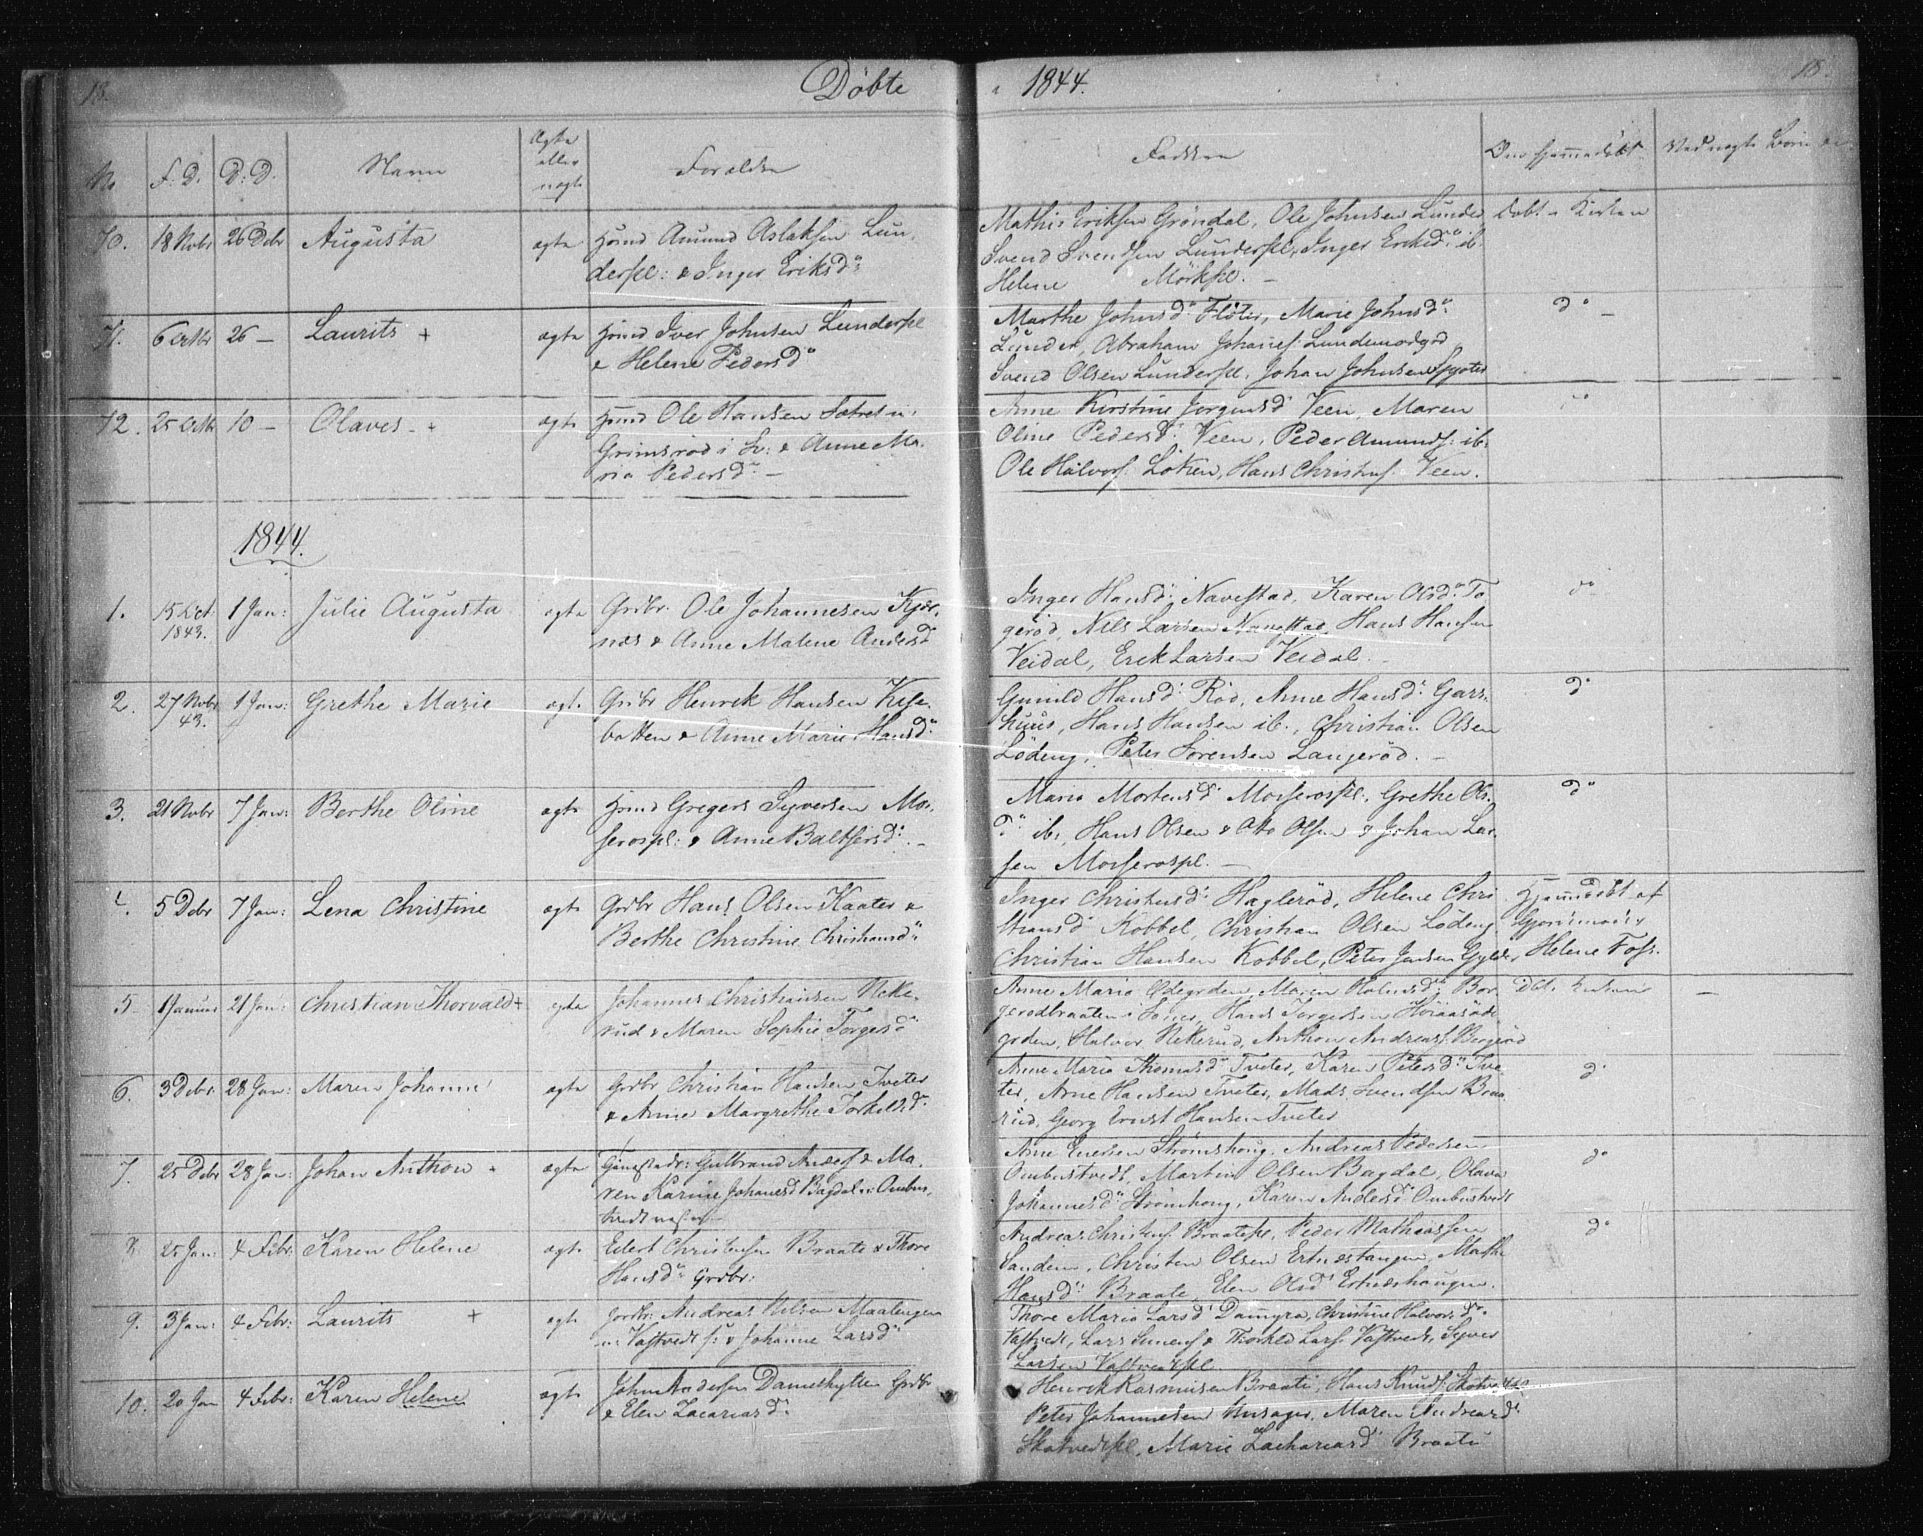 18. Döbte
i 1844. 18.
No F. D. D. D. Navn Ægte eller uægte Forældre
Faddere Om hjemmedöbt Ved uægte Börn
70. 18 Novbr 26 Debr Augusta ægte Huusmd Amund Aslaksen Lun-
derpl: & Inger Eriksd:
Mathis Eriksen Gröndal, Ole Johnsen Lunder Döbt i Kirken
Svend Svendsen Lunderpl, Inger Eriksd: ib.
Helene Mörkpl. –
71. 6 26 – Laurits + ægte Huusmd Iver Johnsen Lunderpl
& Helene Pedersd:
Marthe Johnsd: Flöter, Marie Johnsd: do –
Lunder, Abraham Lundemodgrd
Svend Olsen Lunderpl. Johan Johnsen
72. 25 10 – Olaves – + ægte Huusmd Ole Hansen Sætret u:
Grimsröd i & Anne Ma-
ria Pedersd: –
Anne Kirstine Jorgensd: Veen, Maren do
Oline Pedersd: Veen, Peder Amunds: ib:
Ole Halvors. Löken, Hans Christens. Veen.
1844.
1. 15 Oct 1843. 1 Jan: Julie Augusta ægte Grdbr. Ole Johannesen Kjær-
næs & Anne Malene Andersd
Inger Hansd: Navestad, Karen Olsd: To do
geröd, Nils Larsen Navestad, Hans Hansen
Veidal, Erek Larsen Veidal. –
2. 27 Novbr 43. 1 Jan: Grethe Marie ægt. Grdbr Henrik Hansen
batten & Anne Marie Hansd:
Gunild Hansd: Röd, Anne Hansd: Gars- do
huus, Hans Hansen ib., Christian Olsen
Lödeng, Peter Sörensen Langeröd. –
3. 21 Novbr 7 Jan: Berthe Oline ægte Huusmd Gregers Syversen Mos-
serospl: & Anne Baltsersd: –
Maria Mortensd: Mosserospl. Grethe Ols- do
d: ib:, Hans Olsen & Otto Olsen & Johan Lar-
sen Mosserospl. –
4. 5 Debr 7 Jan: Lena Christine ægte Grdbr Hans Olsen Kaater &
Berthe Christine Christiansd:
Inger Christensd: Hagleröd, Helene Chri Hjemmedöbt af
stiansd Kobbel, Christian Olsen Lödeng
Christian Hansen Kobbel, Peter Jensen Gylder, Helene Foss.
5 1 Januar 21 Jan: Christian Thorvald + ægte Johannes Christiansen Neke-
rud & Maren Sophie Torgersd:
Anne Maria Ödegrden, Maren Holmsd: Bor Döbt. Kirken –
gerödbraaten Hans Torgersen
grden, Halvor Nekerud, Anthon Andreass. Borgeröd
6. 3 Debr. 28 Jan: Maren Johanne ægte Grdbr Christian Hansen Tveter
& Anne Margrethe Torkildsd:
Anne Maria Thomasd: Tveter, Karen Petersd: Tve do
ter, Arne Hansen Tveter, Mads Svendsen
rud, Georg Ernst Hansen Tveter
7. 25 Debr 28 Jan: Johan Anthon + ægte Gulbrand Anders & Ma-
ren Karine Johannesd Bagdal u: Ombus-
tvedt
Anne Strömshoug, Andreas Pedersen do
Ombustvedt, Martin Olsen Bagdal, Olava
Johannesd: Strömhoug, Karen Andersd: Ombustvedt
8. 25 Jan: 4 Febr: Karen Helene ægte Edert Christensen Braate & Thore
Hansd: Grdbr:
Andreas Christens. Braatepl, Peder Mathiassen do
Sanden, Christen Olsen Ertnæstangen, Mathe
Hansd: Braate, Elen Olsd: Ertnæshaugen.
9. 3 Jan: 4 Febr: Laurits + ægte Jordbr. Andreas Nilsen Maalengen
u: Vastvedt & Johanne Larsd:
Thore Maria Larsd: Damyra, Christine Halvorsd:
Vastvedt, Lars & Thorkild Lars. Vastvedt, Syver
Larsen Vastvedtpl.
10. 20 Jan 4 Febr: Karen Helene ægte John Andersen Damshytten Grdbr
& Elen Zacariasd:
Henrik Rasmusen Braate, Hans Knuds. Skotvedtpl
Peter Johannesen Maren Andreasd:
Skotvedtpl, Marie Zachariasd: Braate